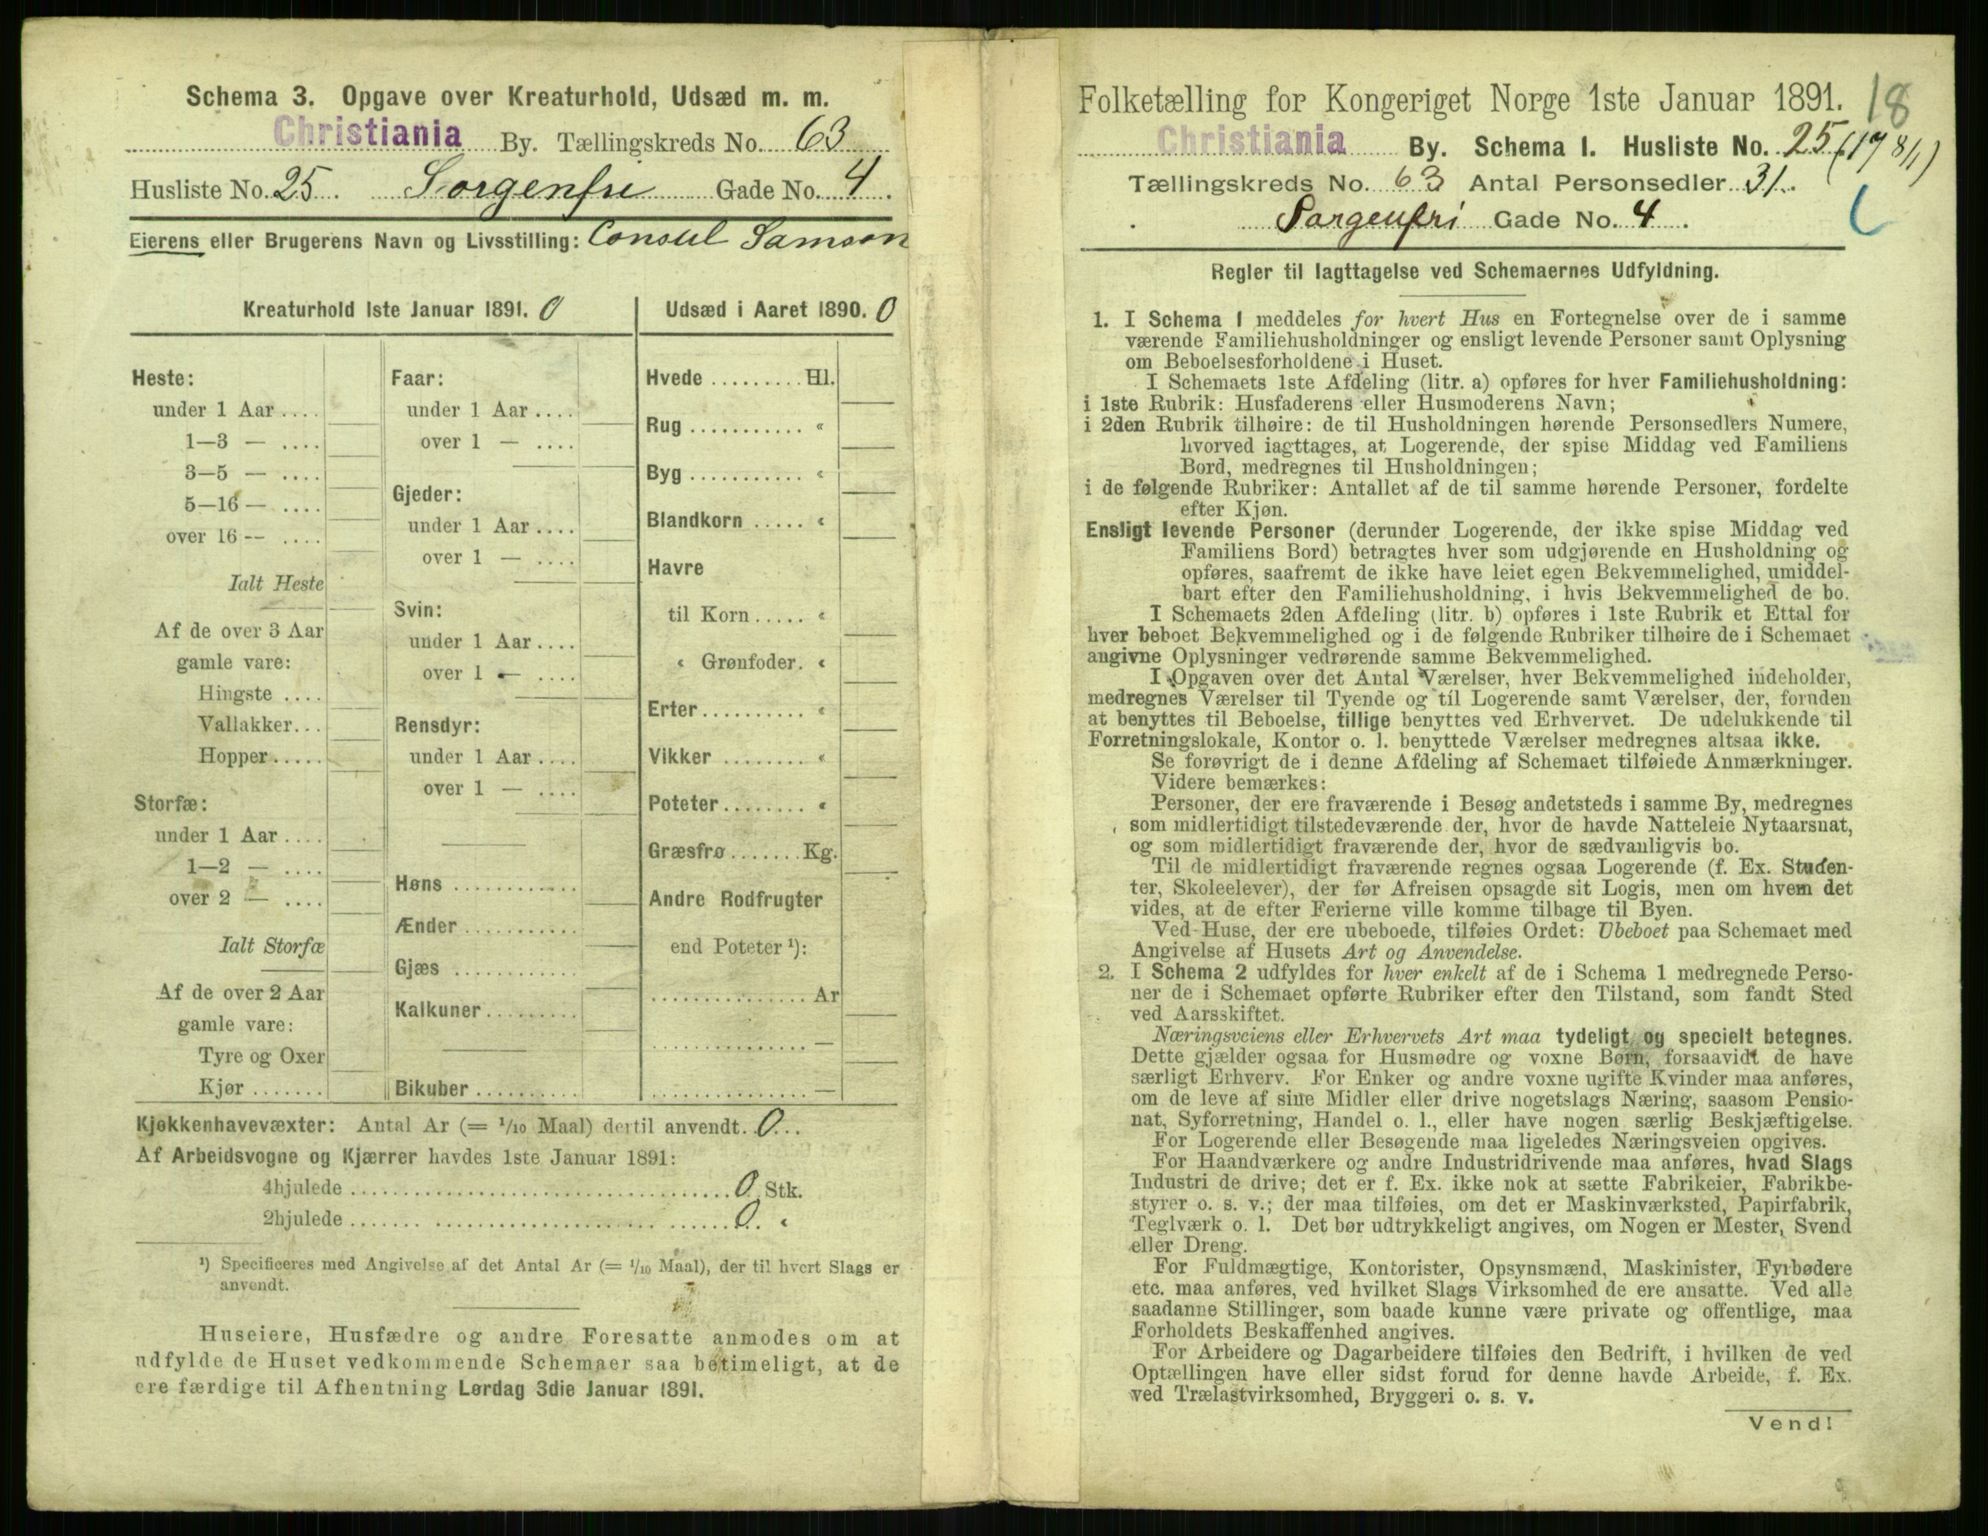 Schema 3. Opgave over Kreaturhold, Udsæd m. m.
Christiania By. Tællingskreds No. 63
Husliste No. 25. Sorgenfri Gade No. 4.
Eierens eller Brugerens Navn og Livsstilling: Consul Samson
Kreaturhold 1ste Januar 1891. 0
Heste:
under 1 Aar ....
1—3 — ....
3—5 — ....
5—16 — ....
over 16 — ....
Ialt Heste
Af de over 3 Aar
gamle vare:
Hingste ....
Vallakker...
Hopper.....
Storfæ:
under 1 Aar ....
1—2 — ....
over 2 — ....
Ialt Storfæ
Af de over 2 Aar
gamle vare:
Tyre og Oxer
Kjør .......
Faar:
under 1 Aar ....
over 1 — ....
Gjeder:
under 1 Aar ....
over 1 — ....
Svin:
under 1 Aar ....
over 1 — ....
Rensdyr:
under 1 Aar ....
over 1 — ....
Høns ............
Ænder ...........
Gjæs ............
Kalkuner .........
Bikuber ..........
Udsæd i Aaret 1890. 0
Hvede ......... Hl.
Rug ........... «
Byg ........... «
Blandkorn ..... «
Havre
til Korn ..... «
« Grønfoder. «
Erter.......... «
Vikker ........ «
Poteter........ «
Græsfrø ....... Kg.
Andre Rodfrugter
end Poteter ¹):
............... Ar
............... —
............... —
Kjøkkenhavevæxter: Antal Ar (= 1/10 Maal) dertil anvendt. 0...
Af Arbeidsvogne og Kjærrer havdes 1ste Januar 1891:
4hjulede .................................... 0 Stk.
2hjulede .................................... 0. «
¹) Specificeres med Angivelse af det Antal Ar (= 1/10 Maal), der til hvert Slags er
anvendt.
Huseiere, Husfædre og andre Foresatte anmodes om at
udfylde de Huset vedkommende Schemaer saa betimeligt, at de
ere færdige til Afhentning Lørdag 3die Januar 1891.
Folketælling for Kongeriget Norge 1ste Januar 1891. 18
Christiania By. Schema 1. Husliste No. 25 (17 8/1)
Tællingskreds No. 63 Antal Personsedler 31.
Sorgenfri Gade No. 4.
Regler til Iagttagelse ved Schemaernes Udfyldning.
1. I Schema 1 meddeles for hvert Hus en Fortegnelse over de i samme
værende Familiehusholdninger og ensligt levende Personer samt Oplysning
om Beboelsesforholdene i Huset.
I Schemaets 1ste Afdeling (litr. a) opføres for hver Familiehusholdning:
i 1ste Rubrik: Husfaderens eller Husmoderens Navn;
i 2den Rubrik tilhøire: de til Husholdningen hørende Personsedlers Numere,
hvorved iagttages, at Logerende, der spise Middag ved Familiens
Bord, medregnes til Husholdningen;
i de følgende Rubriker: Antallet af de til samme hørende Personer, fordelte
efter Kjøn.
Ensligt levende Personer (derunder Logerende, der ikke spise Middag ved
Familiens Bord) betragtes hver som udgjørende en Husholdning og
opføres, saafremt de ikke have leiet egen Bekvemmelighed, umiddel-
bart efter den Familiehusholdning, i hvis Bekvemmelighed de bo.
I Schemaets 2den Afdeling (litr. b) opføres i 1ste Rubrik et Ettal for
hver beboet Bekvemmelighed og i de følgende Rubriker tilhøire de i Schemaet
angivne Oplysninger vedrørende samme Bekvemmelighed.
I Opgaven over det Antal Værelser, hver Bekvemmelighed indeholder,
medregnes Værelser til Tyende og til Logerende samt Værelser, der, foruden
at benyttes til Beboelse, tillige benyttes ved Erhvervet. De udelukkende til
Forretningslokale, Kontor o. l. benyttede Værelser medregnes altsaa ikke.
Se forøvrigt de i denne Afdeling af Schemaet tilføiede Anmærkninger.
Videre bemærkes:
Personer, der ere fraværende i Besøg andetsteds i samme By, medregnes
som midlertidigt tilstedeværende der, hvor de havde Natteleie Nytaarsnat,
og som midlertidigt fraværende der, hvor de sædvanligvis bo.
Til de midlertidigt fraværende regnes ogsaa Logerende (f. Ex. Studen-
ter, Skoleelever), der før Afreisen opsagde sit Logis, men om hvem det
vides, at de efter Ferierne ville komme tilbage til Byen.
Ved Huse, der ere ubeboede, tilføies Ordet: Ubeboet paa Schemaet med
Angivelse af Husets Art og Anvendelse.
2. I Schema 2 udfyldes for hver enkelt af de i Schema 1 medregnede Perso-
ner de i Schemaet opførte Rubriker efter den Tilstand, som fandt Sted
ved Aarsskiftet.
Næringsveiens eller Erhvervets Art maa tydeligt og specielt betegnes.
Dette gjælder ogsaa for Husmødre og voxne Børn, forsaavidt de have
særligt Erhverv. For Enker og andre voxne ugifte Kvinder maa anføres,
om de leve af sine Midler eller drive nogetslags Næring, saasom Pensio-
nat, Syforretning, Handel o. l., eller have nogen særlig Beskjæftigelse.
For Logerende eller Besøgende maa ligeledes Næringsveien opgives.
For Haandværkere og andre Industridrivende maa anføres, hvad Slags
Industri de drive; det er f. Ex. ikke nok at sætte Fabrikeier, Fabrikbe-
styrer o. s. v.; der maa tilføies, om det er Maskinværksted, Papirfabrik,
Teglværk o. l. Det bør udtrykkeligt angives, om Nogen er Mester, Svend
eller Dreng.
For Fuldmægtige, Kontorister, Opsynsmænd, Maskinister, Fyrbødere
etc. maa anføres, ved hvilket Slags Virksomhed de ere ansatte. Ved alle
saadanne Stillinger, som baade kunne være private og offentlige, maa
Forholdets Beskaffenhed angives.
For Arbeidere og Dagarbeidere tilføies den Bedrift, i hvilken de ved
Optællingen have eller sidst forud for denne havde Arbeide, f. Ex.
ved Trælastvirksomhed, Bryggeri o. s. v.
Vend!